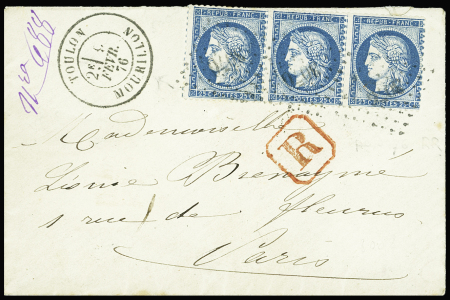 REPUB. FRANC. REPUB. FRANC. REPUB. FRANC.
25 C. POSTES 25 C. 25 C. POSTES 25 C. 25 C. POSTES 25 C.
TOULON MOURILLON
2E
4
FEVR.
76
No 688
R
Mademoiselle
Léonie
1 rue de fleurus
Paris